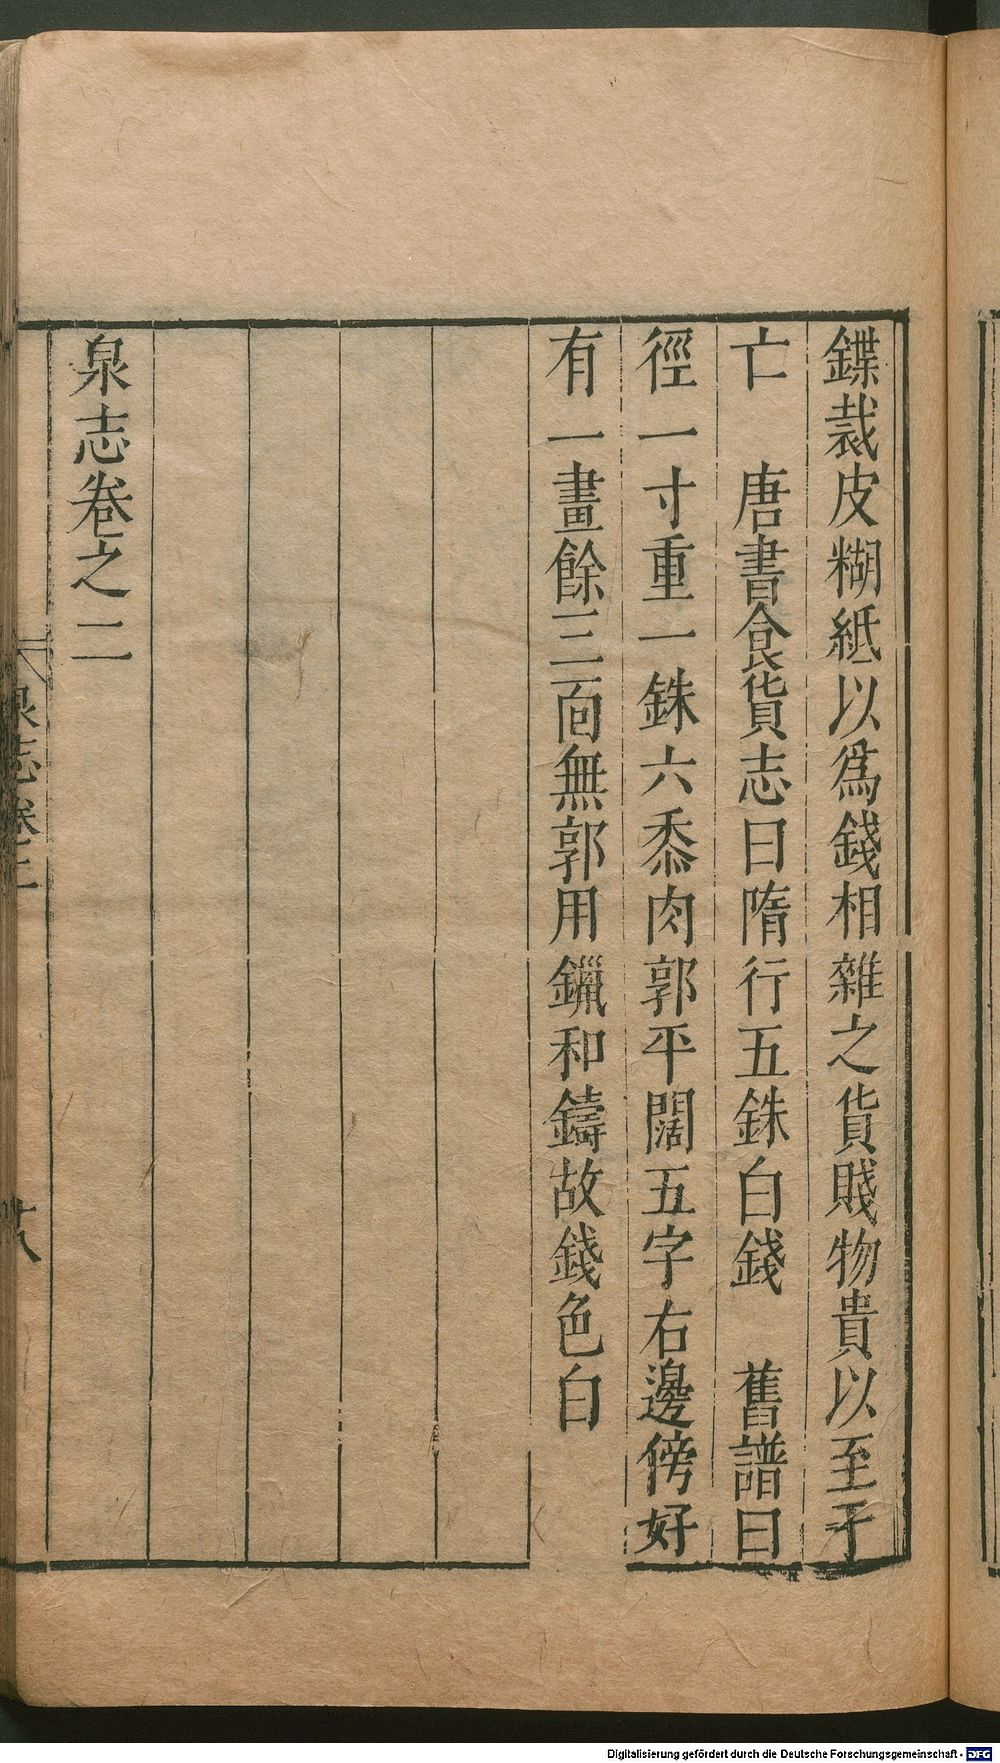 鍱裁皮糊紙以爲錢相雜之貨賤物貴以至于
亡　唐書食貨志曰隋行五銖白錢　舊譜曰
徑一寸重一銖六黍肉郭平闊五字右邊傍好
有一畫餘三面無郭用鑞和鑄故錢色白
泉志卷之二
泉志卷二
十八
Digitalisierung gefördert durch die Deutsche Forschungsgemeinschaft - DFG